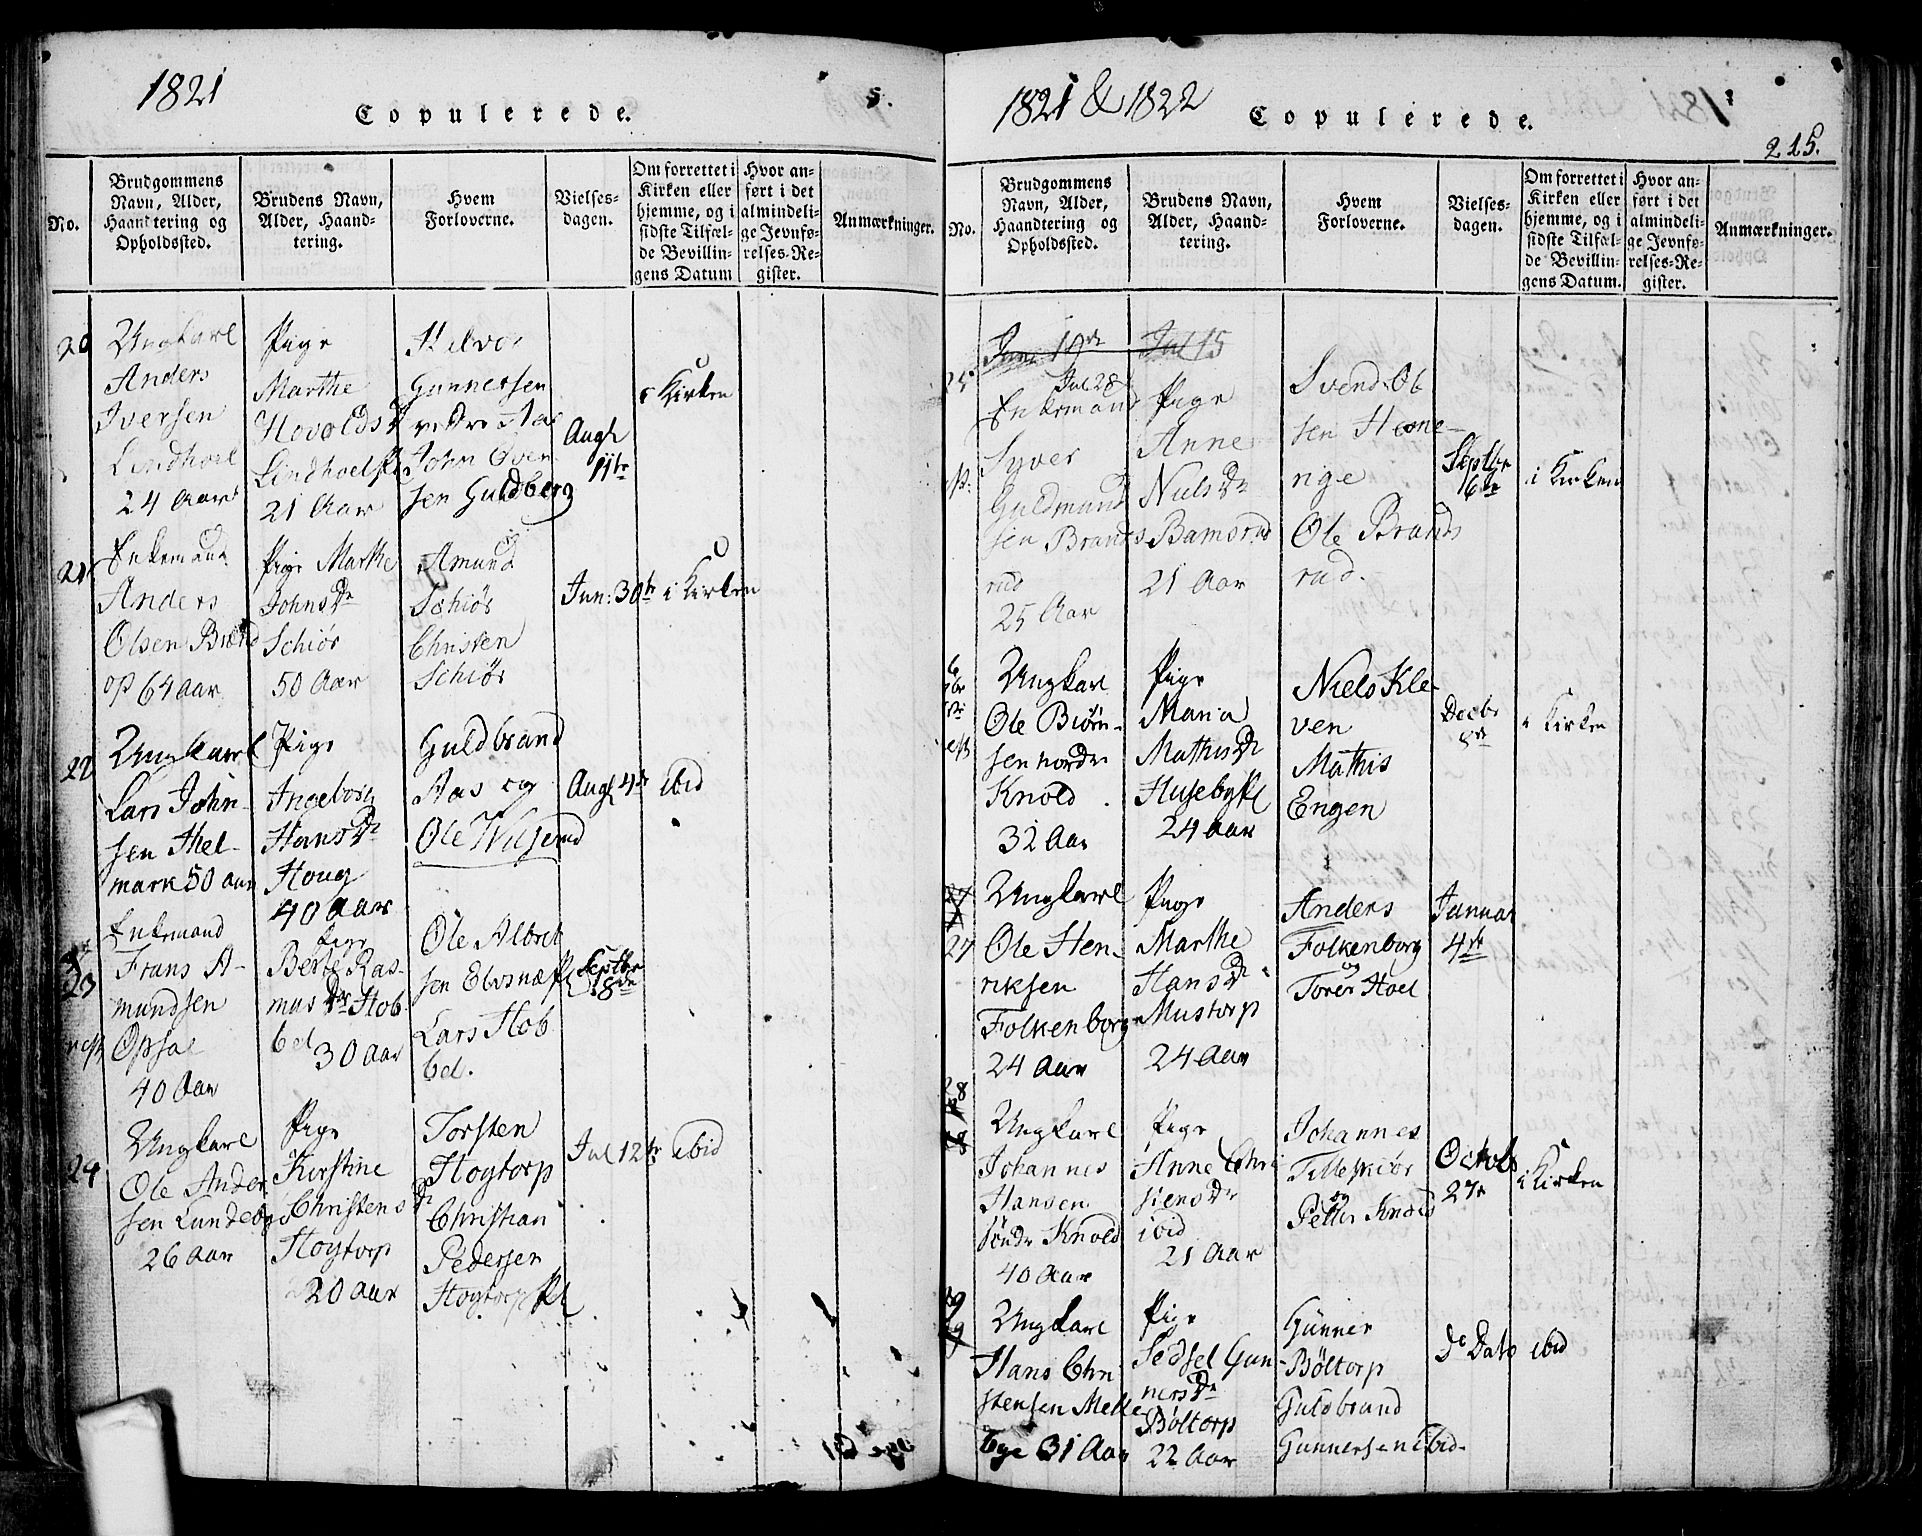 1821
Copulerede.
5.
No.
Brudgommens
Navn, Alder,
Haandtering og
Opholdssted.
Brudens Navn,
Alder, Haand-
tering.
Hvem
Forloverne.
Vielses-
dagen.
Om forrettet i
Kirken eller
hjemme, og i
sidste Tilfæl-
de Bevillin-
gens Datum
Hvor an-
ført i det
almindeli-
ge Jevnfø-
relses-Re-
gister.
Anmærkninger.
20
Ungkarl
Anders
Iversen
Lindhoel
24 Aar
Pige
Marthe
HovoldsDr
Lindhoelspl
21 Aar
Helvor
Gunnersen
nedre Aas
John Even
sen Guldberg
Augt
11te
i Kirken
21
Enkemand
Anders
Olsen
op 64 aar
Pige Marthe
JohnsDr
Schiør
50 Aar
Amund
Schiør
Christen
Schiør
Jun: 30te
i Kirken
22
Ungkarl
Lars John-
sen Hel-
mark 50 aar
Pige
Ingeborg
HansDr
Houg
40 Aar
Guldbrand
Aas og
Ole
Augt 4de
ibid
23
Enkemand
Frans A-
mundsen
Opsal
40 Aar
Pige
Berte Ras-
musDr Hob
bel 30 Aar
Ole Albret
sen
Lars Hob
bel.
Septbr
18de
24
Ungkarl
Ole Ander
sen Lundeby
26 Aar
Pige
Kirstine
ChristensDr
Hoytorp
20 Aar
Torsten
Hoytorp
Christian
Pedersen
Hoytorp Pl
Jul 12te
ibid
1821 & 1822
Copulerede.
215.
No.
Brudgommens
Navn, Alder,
Haandtering og
Opholdssted.
Brudens Navn,
Alder, Haand-
tering.
Hvem
Forloverne.
Vielses-
dagen.
Om forrettet i
Kirken eller
hjemme, og i
sidste Tilfæl-
de Bevillin-
gens Datum.
Hvor an-
ført i det
almindeli-
ge Jevnfø-
relses-Re-
gister.
Anmærkninger.
Jul 15
25
Jul 28
Enkemand
Syver
Guldmund
sen Brands
rud
25 Aar
Pige
Anne
NielsDr
Bamsrud
21 Aar
Svend Ol
sen Hone-
rige
Ole Brands
rud.
Septbr
6te
i Kirken
Ungkarl
Ole Biørn-
sen nordr
Knold
32 Aar
Pige
Maria
MathisDr
Husebypl
24 Aar
Niels Kle
ven
Mathis
Engen
Decbr
8de
i Kirken
27
Ungkarl
Ole Hen-
riksen
Folkenborg
24 Aar
Pige
Marthe
HansDr
Mustorp
24 Aar
Anders
Folkenborg
og
Torer Hoel
Januar
4de
28
Ungkarl
Johannes
Hansen
søndr Knold
40 Aar
Pige
Anne Chri
stensDr
ibid
21 Aar
Johannes
Tilleskiør
og
Petter
Octob
27
i Kirken
Ungkarl
Hans Chri
stensen Melle
bye 31 Aar
Pige
Sedsel Gun-
nersDr
Bøltorp
22 Aar
Gunner
Bøltorp
Guldbrand
Gunnersen ibid
do Dato
ibid